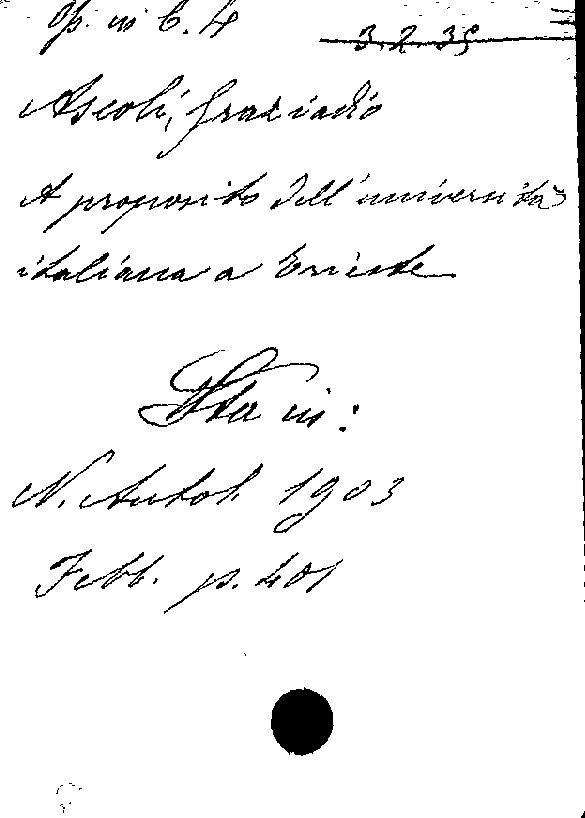 Op. in C. 4
3. 2. 35
Ascoli, Graziadio
A proposito dell'università
italiana a Trieste
Sta in:
N. Antol. 1903
Febb. p. 401